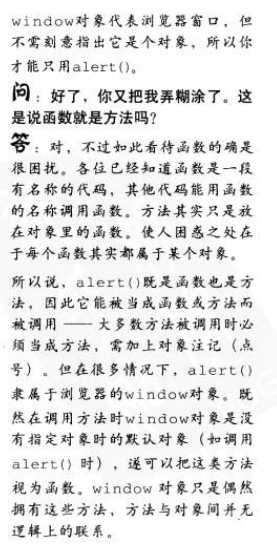 window对象代表浏览器窗口，但
不需刻意指出它是个对象，所以你
才能只用alert()。
问：好了，你又把我弄糊涂了。这
是说函数就是方法吗？
答：对，不过如此看待函数的确是
很困扰。各位已经知道函数是一段
有名称的代码，其他代码能用函数
的名称调用函数。方法其实只是放
在对象里的函数。使人困惑之处在
于每个函数其实都属于某个对象。
所以说，alert()既是函数也是方
法，因此它能被当成函数或方法而
被调用 —— 大多数方法被调用时必
须当成方法，需加上对象注记（点
号）。但在很多情况下，alert()
隶属于浏览器的window对象。既
然在调用方法时window对象是没
有指定对象时的默认对象（如调用
alert() 时），遂可以把这类方法
视为函数。window 对象只是偶然
拥有这些方法，方法与对象间并无
逻辑上的联系。